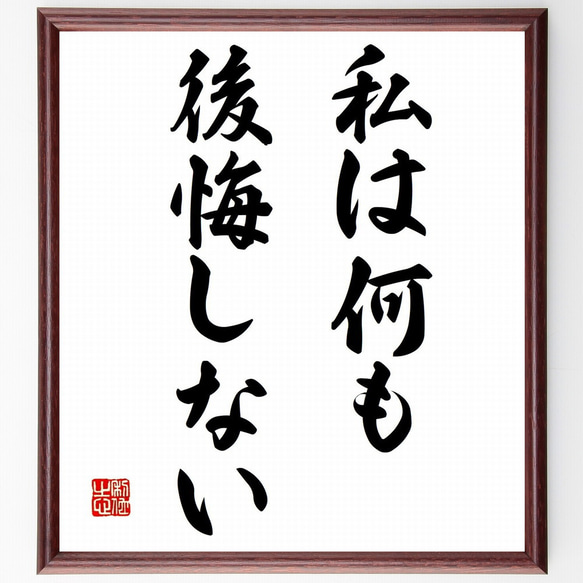 私は何も
後悔しない